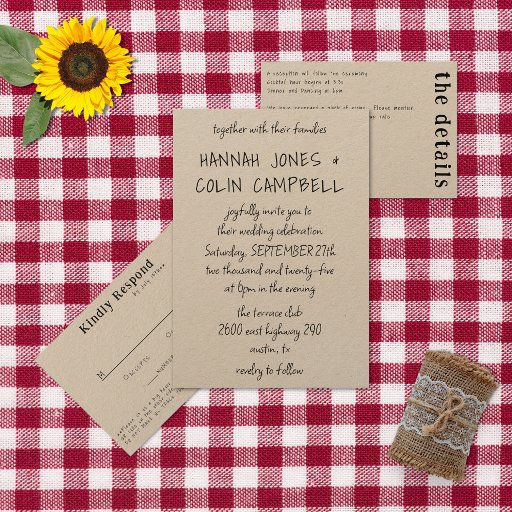 together with their families
HANNAH JONES &
COLIN CAMPBELL
joyfully invite you to
their wedding celebration
Saturday, SEPTEMBER 27th
two thousand and twenty-five
at 6pm in the evening
the terrace club
2600 east highway 290
austin, tx
revelry to follow
the details
A reception will follow the ceremony
Cocktail hour begins at
Dinner and Dancing at 6pm
Please mention
Kindly Respond
by july
M
ACCEPTS